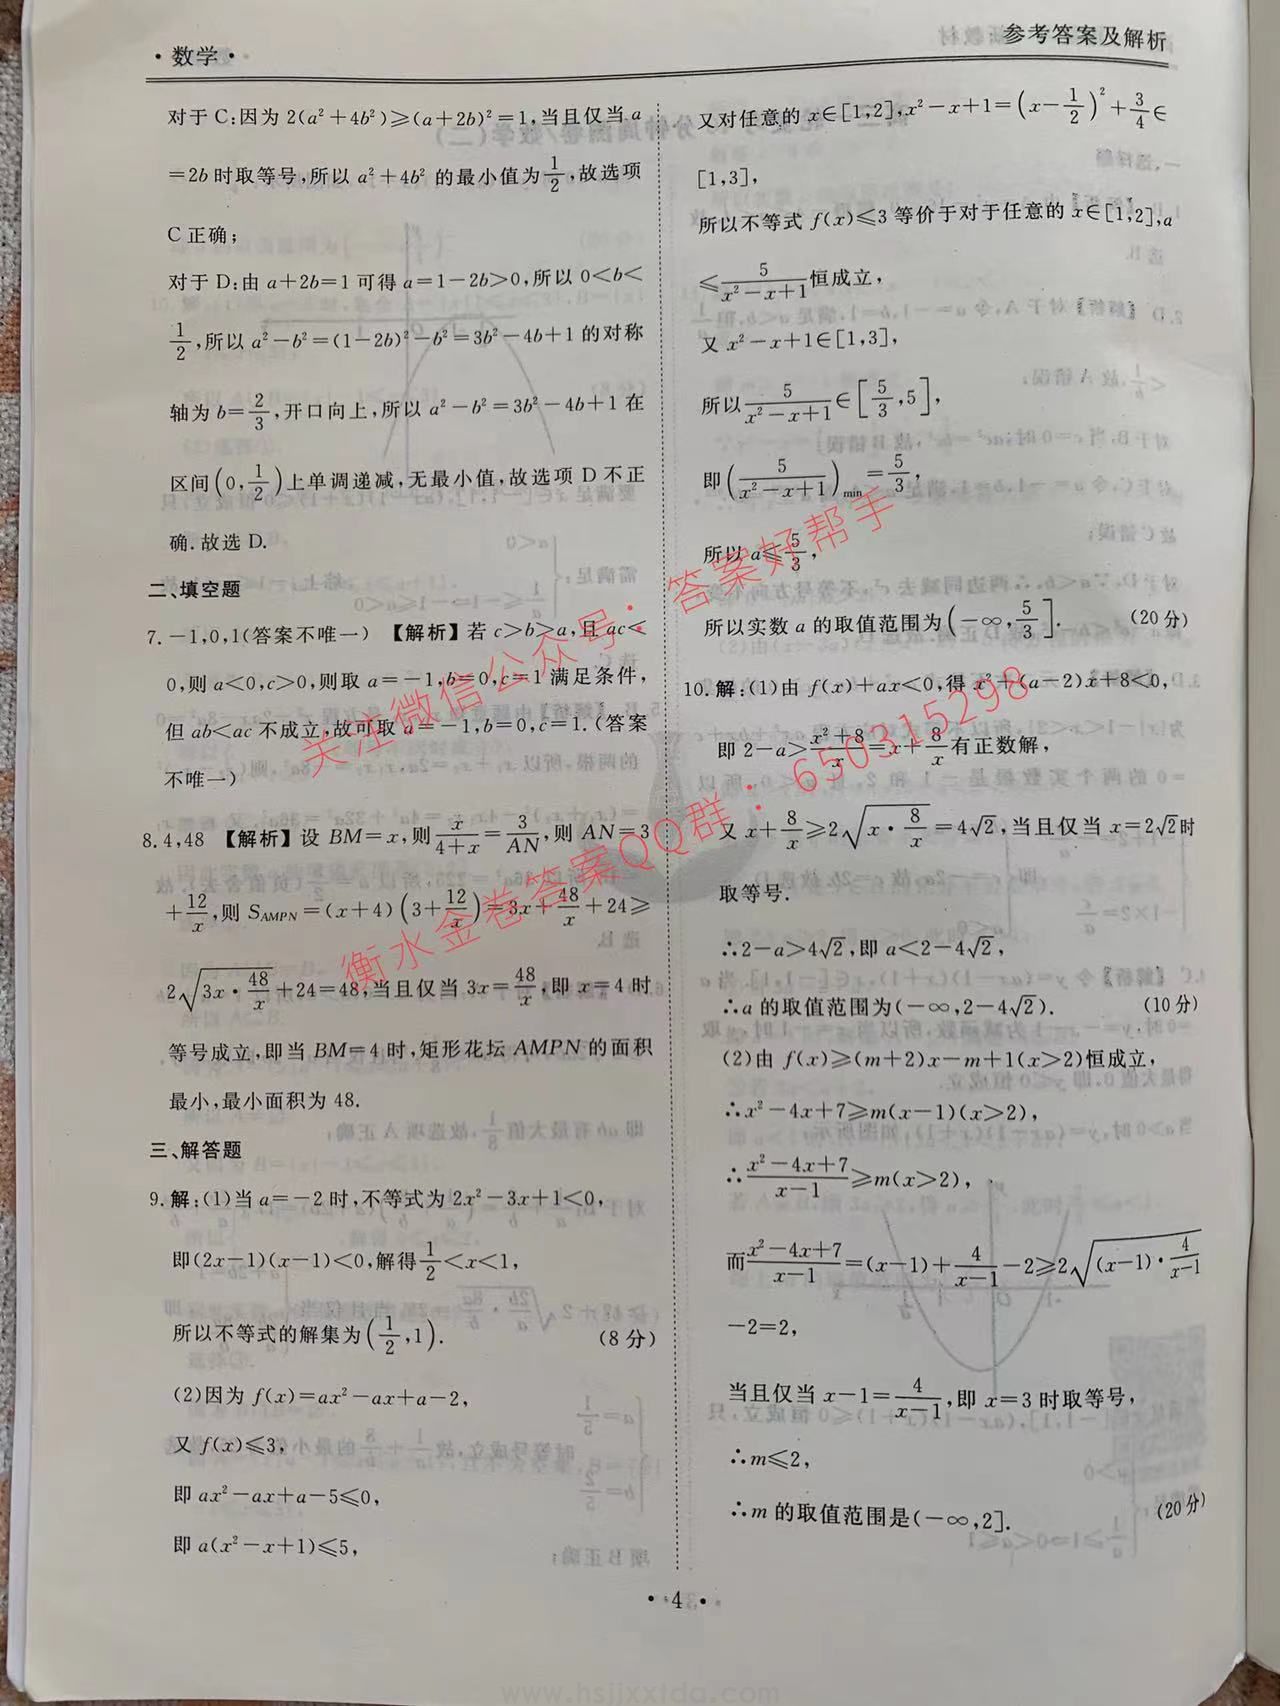 ·数学·
参考答案及解析
对于C:因为2(a²+4b²)≥(a+2b)²=1,当且仅当a
=2b时取等号,所以a²+4b²的最小值为1/2,故选项
C正确;
对于D:由a+2b=1可得a=1-2b>0,所以0<b<
1/2,所以a²-b²=(1-2b)²-b²=3b²-4b+1的对称
轴为b=2/3,开口向上,所以a²-b²=3b²-4b+1在
区间(0,1/2)上单调递减,无最小值,故选项D不正
确.故选D.
二、填空题
7.-1,0,1(答案不唯一) 【解析】若c>b>a,且ac<
0,则a<0,c>0,则取a=-1,b=0,c=1满足条件,
但ab<ac不成立,故可取a=-1,b=0,c=1.(答案
不唯一)
8.4,48 【解析】设BM=x,则x/(4+x)=3/AN,则AN=3
+12/x,则S_AMPN=(x+4)(3+12/x)=3x+48/x+24≥
2√(3x·48/x)+24=48,当且仅当3x=48/x,即x=4时
等号成立,即当BM=4时,矩形花坛AMPN的面积
最小,最小面积为48.
三、解答题
9.解:(1)当a=-2时,不等式为2x²-3x+1<0,
即(2x-1)(x-1)<0,解得1/2<x<1,
所以不等式的解集为(1/2,1). (8分)
(2)因为f(x)=ax²-ax+a-2,
又f(x)≤3,
即ax²-ax+a-5≤0,
即a(x²-x+1)≤5,
又对任意的x∈[1,2],x²-x+1=(x-1/2)²+3/4∈
[1,3],
所以不等式f(x)≤3等价于对于任意的x∈[1,2],a
≤5/(x²-x+1)恒成立,
又x²-x+1∈[1,3],
所以5/(x²-x+1)∈[5/3,5],
即(5/(x²-x+1))min=5/3,
所以a≤5/3,
所以实数a的取值范围为(-∞,5/3]. (20分)
10.解:(1)由f(x)+ax<0,得x²+(a-2)x+8<0,
即2-a>(x²+8)/x=x+8/x有正数解,
又x+8/x≥2√(x·8/x)=4√2,当且仅当x=2√2时
取等号.
∴2-a>4√2,即a<2-4√2,
∴a的取值范围为(-∞,2-4√2). (10分)
(2)由f(x)≥(m+2)x-m+1(x>2)恒成立,
∴x²-4x+7≥m(x-1)(x>2),
∴(x²-4x+7)/(x-1)≥m(x>2),
而(x²-4x+7)/(x-1)=(x-1)+4/(x-1)-2≥2√((x-1)·4/(x-1))
-2=2,
当且仅当x-1=4/(x-1),即x=3时取等号,
∴m≤2,
∴m的取值范围是(-∞,2]. (20分)
·4·
关注微信公众号：答案好帮手
衡水金卷答案QQ群：650315298
www.hsjjxxtda.com